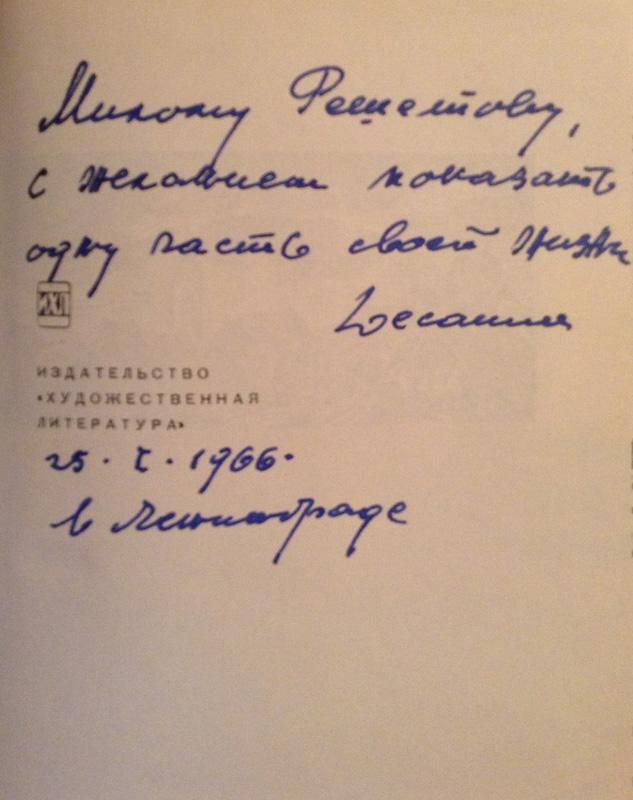 Милому Решетову,
с желанием показать
одну часть своей жизни
ИХЛ
ИЗДАТЕЛЬСТВО
«ХУДОЖЕСТВЕННАЯ
ЛИТЕРАТУРА»
25. X. 1966.
в Ленинграде